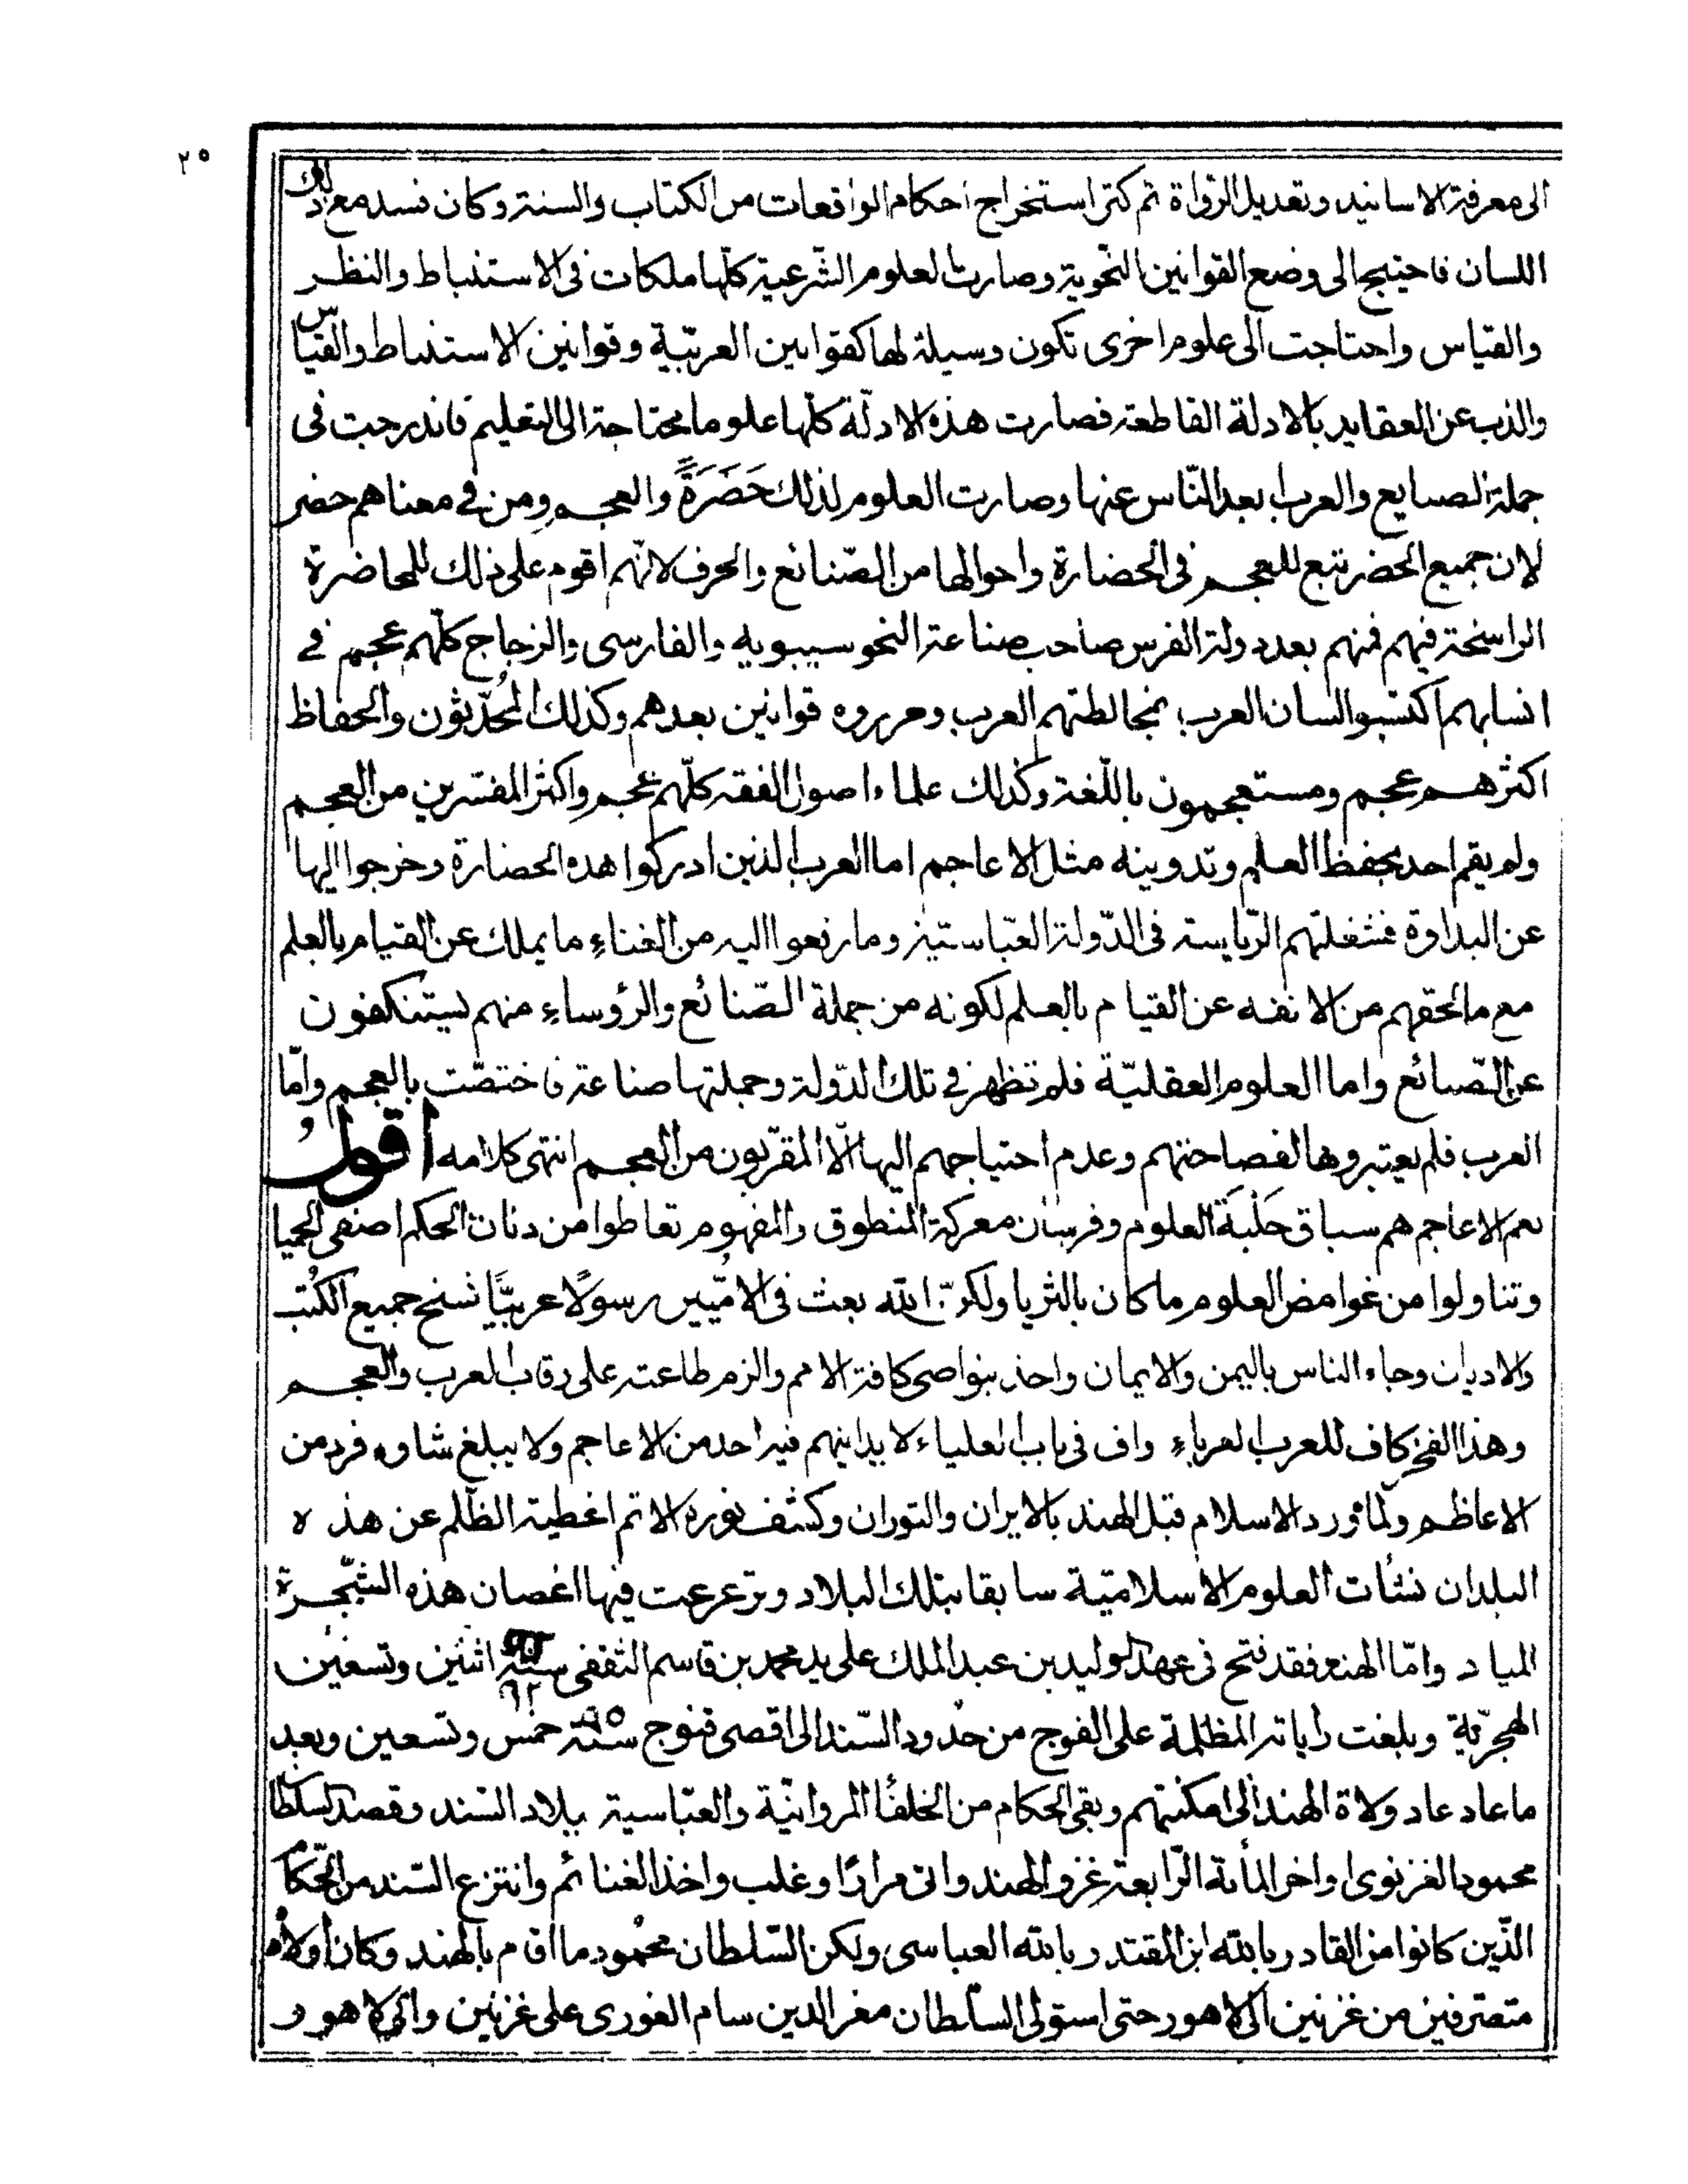 ٢٥
الى معرفة الاسانيد وتعديل الرواة ثم كثر استخراج احكام الواقعات من الكتاب والسنة وكان فسد مع ذلك
اللسان فاحتيج الى وضع القوانين النحوية وصارت العلوم الشرعية كلها ملكات فى الاستنباط والنظر
والقياس واحتاجت الى علوم اخرى تكون وسيلة لها كقوانين العربيّة وقوانين الاستنباط والقياس
والذب عن العقايد بالادلة القاطعة فصارت هذه الادلّة كلّها علوما محتاجة الى التعليم فاندرجت فى
جملة الصنايع والعرب ابعد النّاس عنها وصارت العلوم لذلك حَضَرَةً والعجم ومن فى معناهم حضر
لان جميع الحضر تبع للعجم فى الحضارة واحوالها من الصّنائع والحرف لانّهم اقوم على ذلك للمحاضرة
الراسخة فيهم فمنهم بعد دولة الفرس صاحب صناعة النحو سيبويه والفارسى والزجاج كلّهم عجم فى
انسابهم اكتسبوا لسان العرب بمخالطتهم العرب وحرروه قوانين بعدهم وكذلك المُحدّثون والحفاظ
اكثرهم عجم ومستعجمون باللّغة وكذلك علماء اصول الفقه كلّهم عجم واكثر المفسّرين من العجم
ولم يقم احد بحفظ العلم وتدوينه مثل الاعاجم اما العرب الذين ادركوا هذه الحضارة وخرجوا اليها
عن البداوة فشغلتهم الرّياسة فى الدّولة العبّاسيّة وما رفعوا اليه من الغناء ما يملك عن القيام بالعلم
مع ما لحقهم من الانفه عن القيام بالعلم لكونه من جملة الصّنائع والرؤساء منهم يستنكفون
عن الصّنائع واما العلوم العقليّة فلم تظهر فى تلك الدّولة وحملتها صناعة فاختصّت بالعجم وامّا
العرب فلم يعتبروها لفصاحتهم وعدم احتياجهم اليها الّا المقرّبون من العجم انتهى كلامه اقولُ
نعم الاعاجم هم سباق حَلْبَة العلوم وفرسان معركة المنطوق والمفهوم تعاطوا من دنان الحكم اصفى الحميا
وتناولوا من غوامض العلوم ما كان بالثريا ولكنّ الله بعث فى الامُّيين رسولًا عربيًّا نسخ جميع الكُتب
والاديان وجاء الناس باليمن والايمان واخذ بنواصى كافة الامم والزم طاعته على رقاب العرب والعجم
وهذا الفخر كاف للعرب العرباء واف فى باب العلياء لا يدانيهم فيه احد من الاعاجم ولا يبلغ شاوه فرد من
الاعاظم ولمّا ورد الاسلام قبل الهند بالايران والتوران وكشف نوره الاتم اغطية الظلم عن هذه
البلدان نشأت العلوم الاسلاميّة سابقا بتلك البلاد وترعرعت فيها اغصان هذه الشّجرة
المياد وامّا الهند فقد فتح فى عهد الوليد بن عبد الملك على يد محمد بن قاسم الثقفى سنة ٩٢ اثنين وتسعين
الهجريّة وبلغت راياته المظلمة على الفوج من حُدود السّند الى اقصى قنوج سنة ٩٥ خمس وتسعين وبعد
ما عاد عاد ولاة الهند الى امكنتهم وبقى الحكام من الخلفأ المروانيّة والعبّاسية ببلاد السّند وقصد السلطان
محمود الغزنوى اواخر المأية الرّابعة غزو الهند واتى مرارًا وغلب واخذ الغنائم وانتزع السّند من الحكّام
الذّين كانوا من القادر بالله ابن المقتدر بالله العباسى ولكن السّلطان محمُود ما اقام بالهند وكان اولاده
متصرفين من غزنين الى لاهور حتى استولى السلطان معز الدين سام الغورى على غزنين واتى لاهور